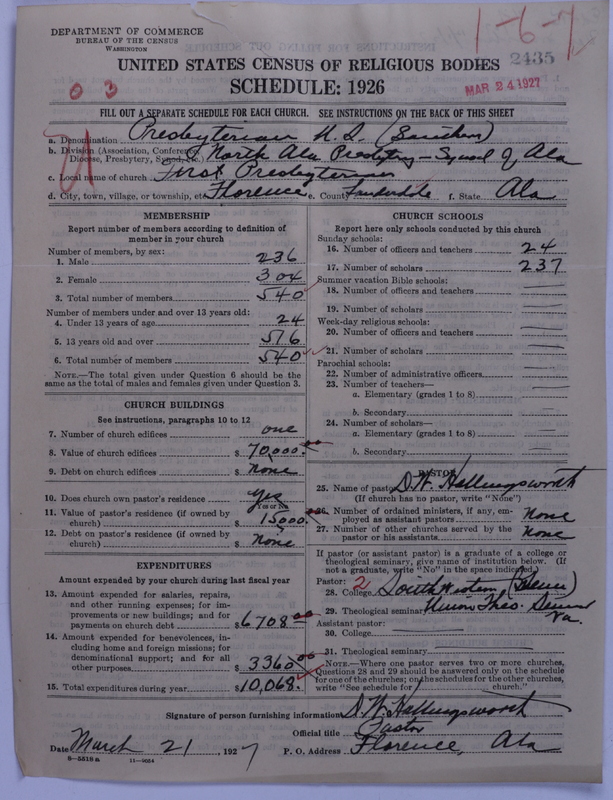 DEPARTMENT OF COMMERCE
BUREAU OF THE CENSUS
WASHINGTON
1-6-7
2435
MAR 24 1927
UNITED STATES CENSUS OF RELIGIOUS BODIES
SCHEDULE: 1926
0 3
FILL OUT A SEPARATE SCHEDULE FOR EACH CHURCH. SEE INSTRUCTIONS ON THE BACK OF THIS SHEET
a. Denomination Presbyterian U.S. (Southern)
b. Division (Association, Conference, Diocese, Presbytery, Synod, etc.) North Ala Presbytery - Synod of Ala
c. Local name of church First Presbyterian
d. City, town, village, or township, etc. Florence e. County Lauderdale f. State Ala
MEMBERSHIP
Report number of members according to definition of
member in your church
Number of members, by sex:
1. Male 236
2. Female 304
3. Total number of members 540
Number of members under and over 13 years old:
4. Under 13 years of age 24
5. 13 years old and over 516
6. Total number of members 540
NOTE.—The total given under Question 6 should be
same as the total of males and females given under Question 3.
CHURCH BUILDINGS
See instructions, paragraphs 10 to 12
7. Number of church edifices one
8. Value of church edifices $ 70,000.00
9. Debt on church edifices $ None
10. Does church own pastor's residence Yes
Yes or No
11. Value of pastor's residence (if owned by
church) $ 15000.00
12. Debt on pastor's residence (if owned by
church) $ None
EXPENDITURES
Amount expended by your church during last fiscal year
13. Amount expended for salaries, repairs,
and other running expenses; for im-
provements or new buildings; and for
payments on church debt $ 6708.00
14. Amount expended for benevolences, in-
cluding home and foreign missions; for
denominational support; and for all
other purposes $ 3360.00
15. Total expenditures during year $ 10,068.
CHURCH SCHOOLS
Report here only schools conducted by this church
Sunday schools:
16. Number of officers and teachers 24
17. Number of scholars 237
Summer vacation Bible schools:
18. Number of officers and teachers
19. Number of scholars
Week-day religious schools:
20. Number of officers and teachers
21. Number of scholars
Parochial schools:
22. Number of administrative officers
23. Number of teachers—
a. Elementary (grades 1 to 8)
b. Secondary
24. Number of scholars—
a. Elementary (grades 1 to 8)
b. Secondary
PASTOR
25. Name of pastor D.W. Hollingsworth
(If church has no pastor, write "None")
26. Number of ordained ministers, if any, em-
ployed as assistant pastors None
27. Number of other churches served by the
pastor or his assistants None
If pastor (or assistant pastor) is a graduate of a college or
theological seminary, give name of institution below. (If
not a graduate, write "No" in the space indicated)
Pastor: 2
28. College Southwestern
29. Theological seminary Union Theo. Va.
Assistant pastor:
30. College
31. Theological seminary
NOTE.—Where one pastor serves two or more churches,
Questions 28 and 29 should be answered only on the schedule
for one of the churches; on the schedules for the other churches,
write "See schedule for church."
Signature of person furnishing information D.W. Hollingsworth
Official title Pastor
Date March 21, 1927 P. O. Address Florence, Ala
8-5518a 11-9024